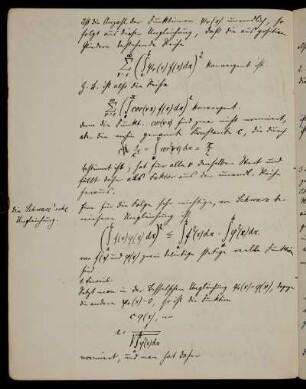 Ist die Anzahl der Funktionen φν(x) unendlich, so
folgt aus dieser Ungleichung, daß die aus positiven
Gliedern bestehende Reihe
∑ν=1^∞ (∫a^b φν(x) f(x) dx)² konvergent ist
z. B. ist also die Reihe
∑ν=1^∞ (∫ cos(νx) f(x) dx)² konvergent.
denn die Funkt. cos(νx) sind zwar nicht normiert,
aber die vorher genannte Konstante c, die durch
bestimmt ist, hat für alle ν denselben Wert und
fällt daher als Faktor aus der unendl. Reihe
heraus.
die Schwarz'sche
Ungleichung.
Eine für die Folge sehr wichtige, von Schwarz be
wiesene Ungleichung ist
(∫a^b f(x) φ(x) dx)² ≤ ∫a^b f²(x) dx · ∫a^b φ²(x) dx.
wo f(x) und φ(x) zwei beliebige stetige reelle Funktionen
sind.
Setzt man in der Besselschen Ungleichung φ1(x) = φ(x), dagegen
die anderen φν(x) = 0, so ist die Funktion
c φ(x), wo
c = 1/√∫a^b φ²(x) dx
normiert, und man hat daher